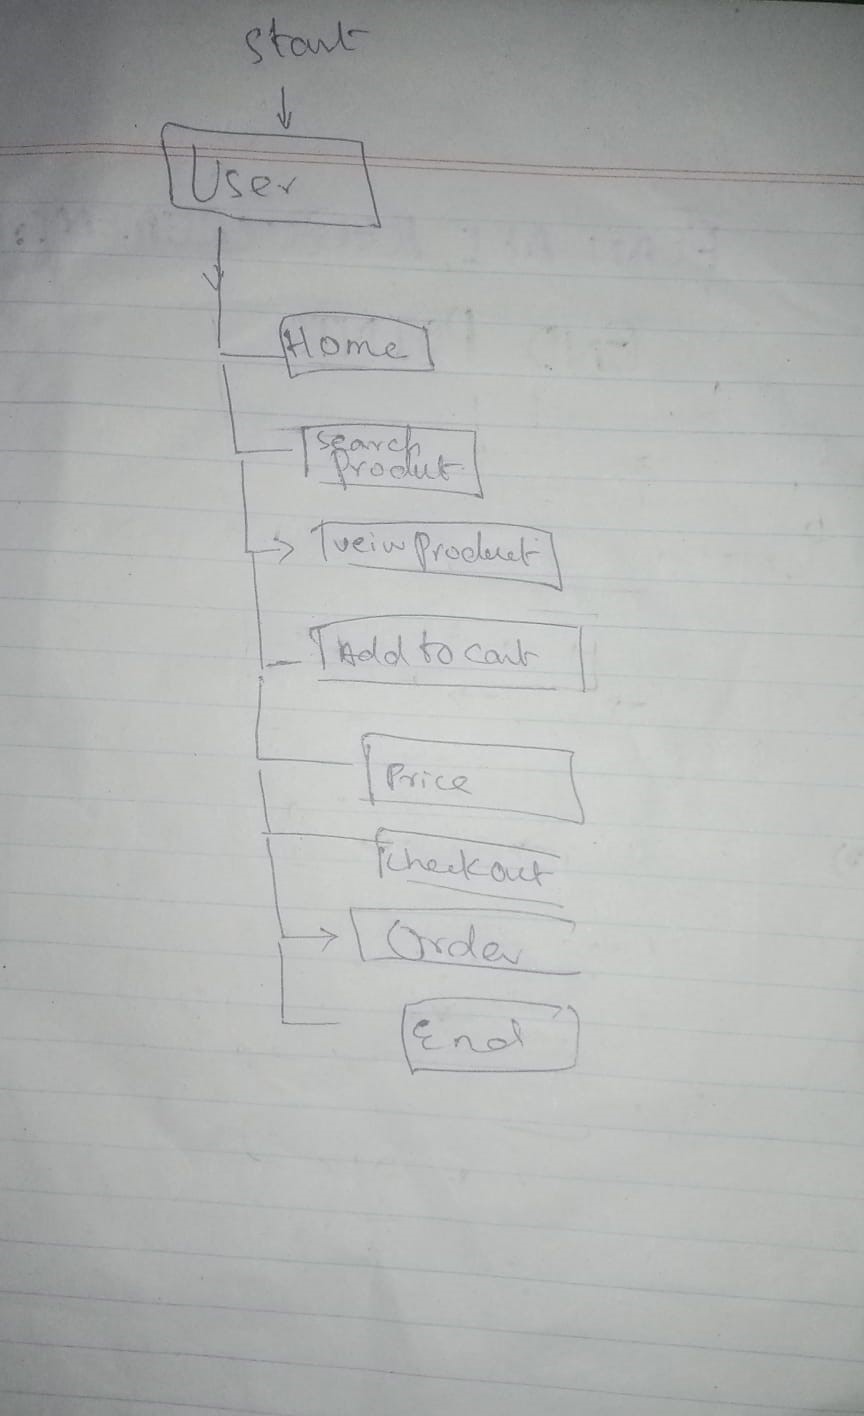 Start
User
Home
Search
Produt
veiw Product
Add to cart
Price
Checkout
Order
End